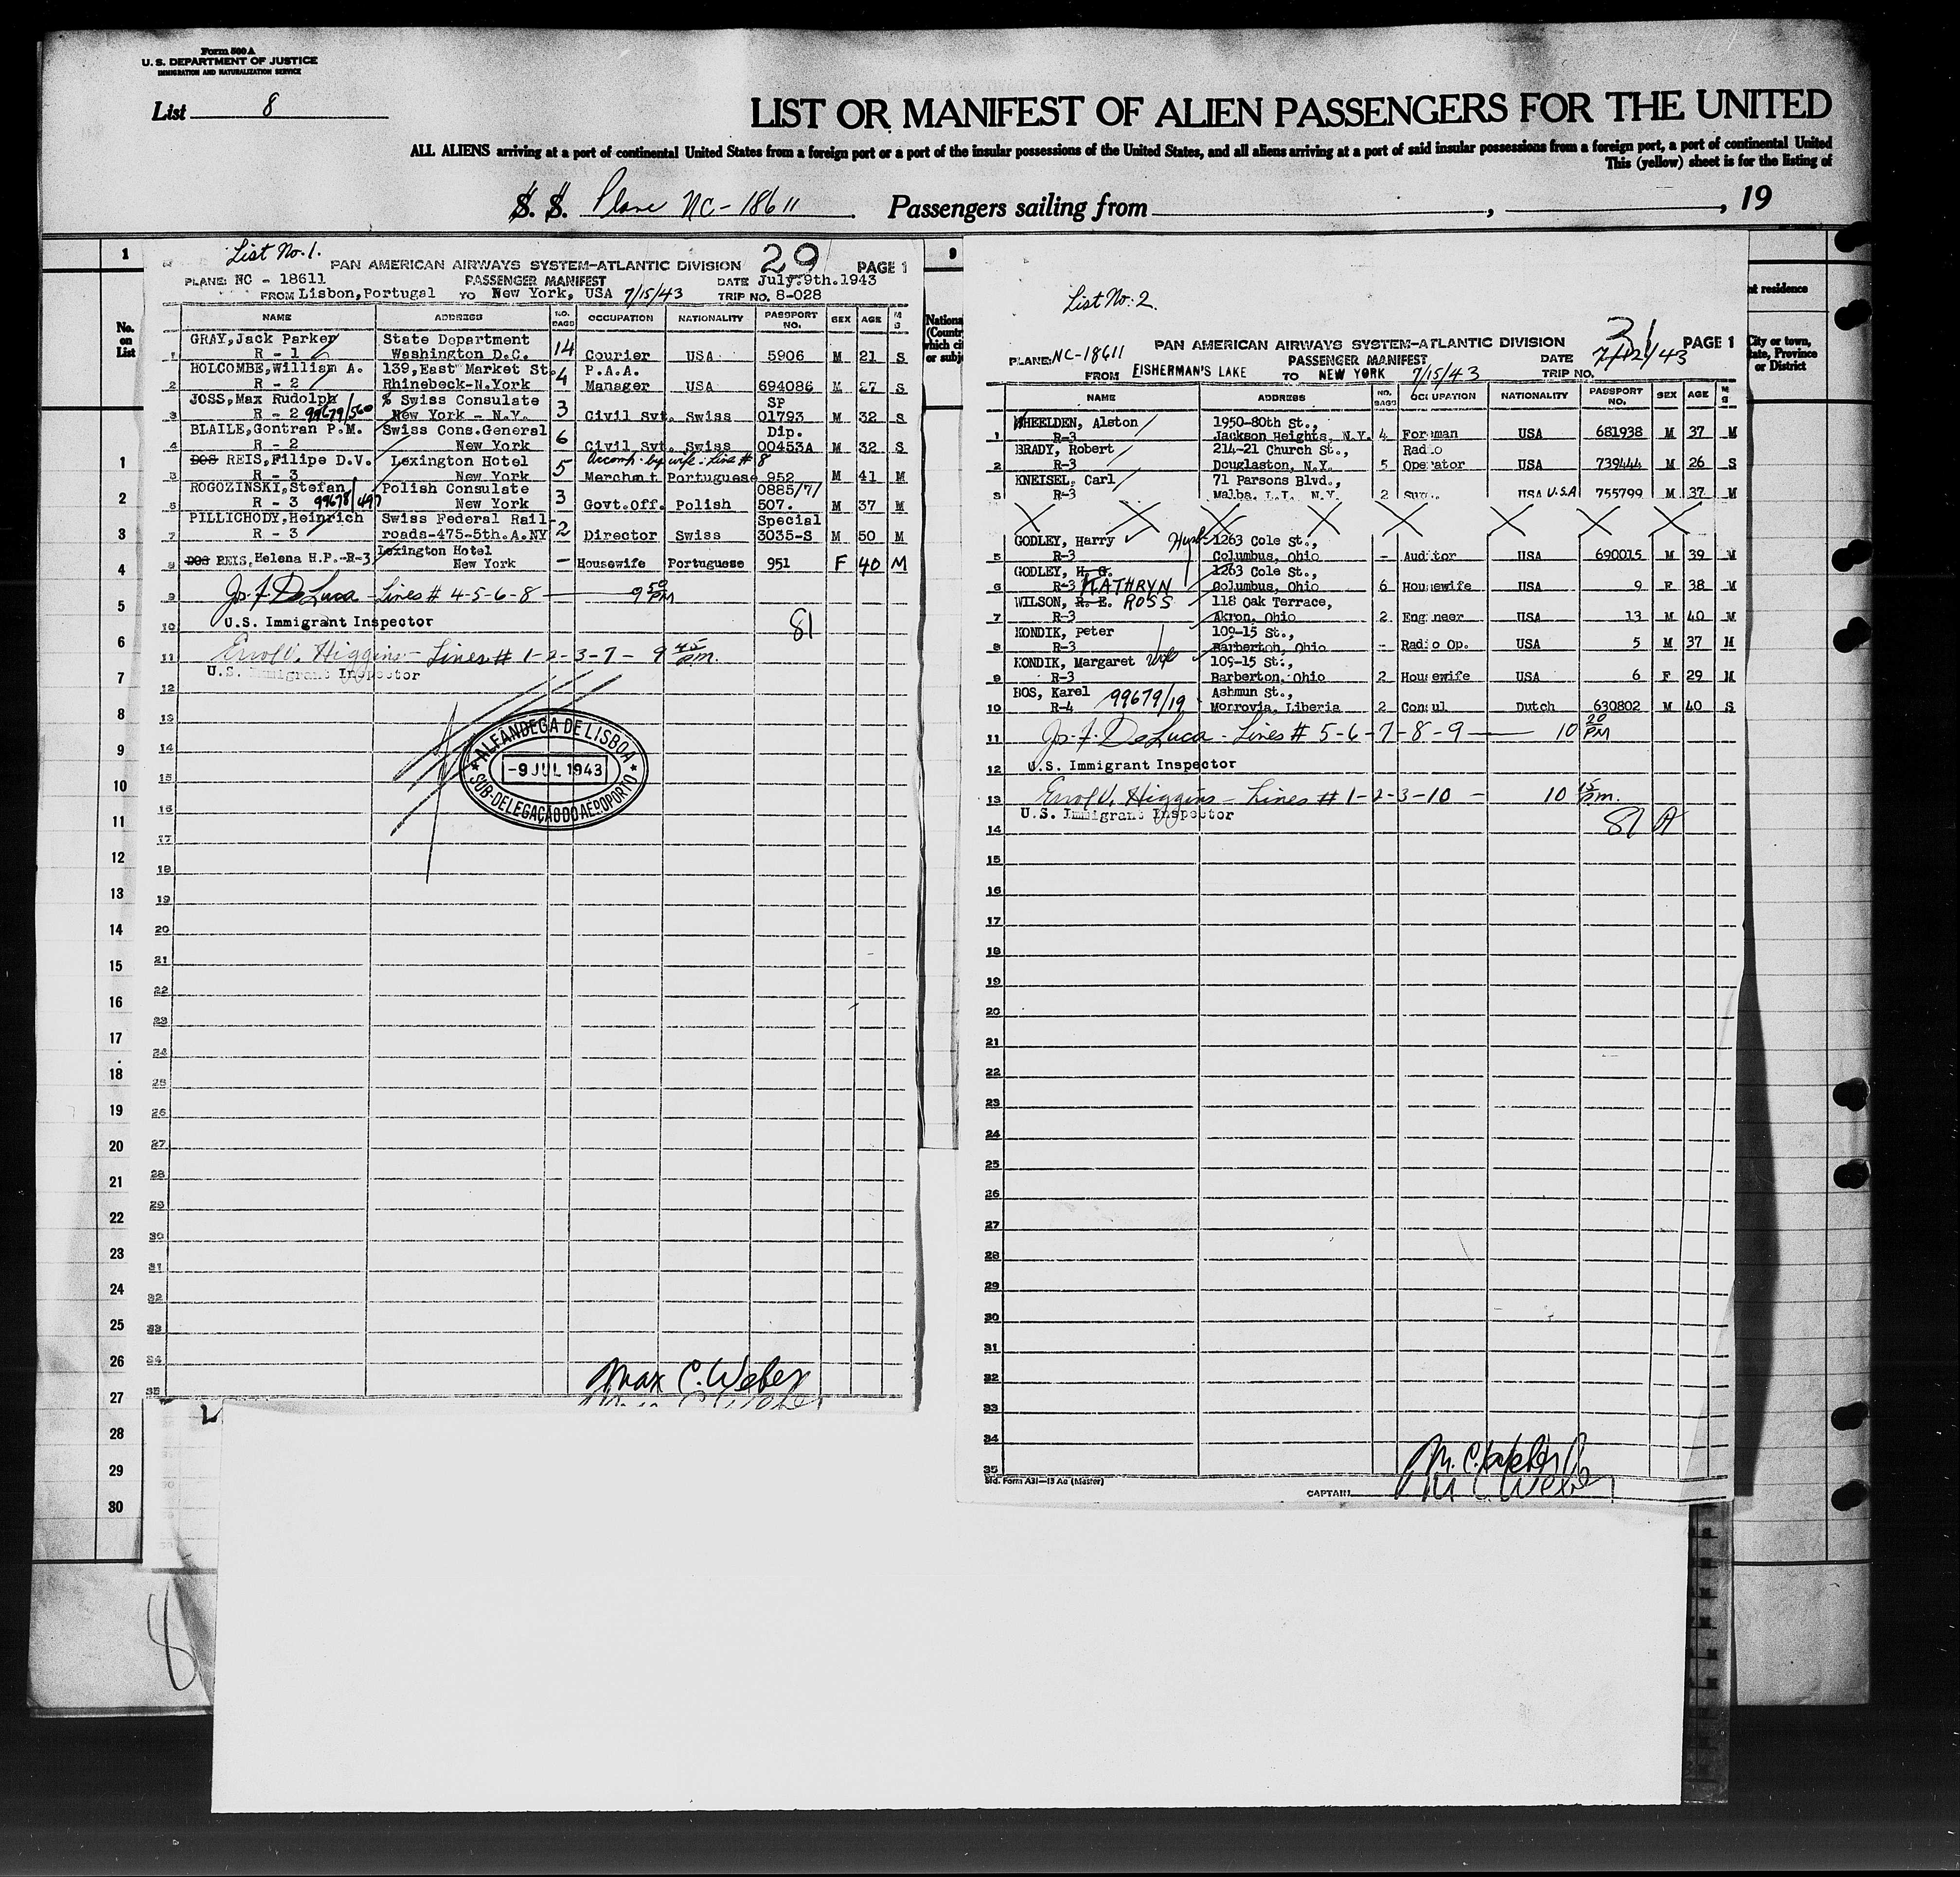 Form 500 A
U. S. DEPARTMENT OF JUSTICE
IMMIGRATION AND NATURALIZATION SERVICE
List 8
LIST OR MANIFEST OF ALIEN PASSENGERS FOR THE UNITED
ALL ALIENS arriving at a port of continental United States from a foreign port or a port of the insular possessions of the United States, and all aliens arriving at a port of said insular possessions from a foreign port, a port of continental United
This (yellow) sheet is for the listing of
S. S. Plane NC-18611 Passengers sailing from , , 19
1
No.
on
List
1
2
3
4
5
6
7
8
9
10
11
12
13
14
15
16
17
18
19
20
21
22
23
24
25
26
27
28
29
30
List No. 1. 29
PAN AMERICAN AIRWAYS SYSTEM-ATLANTIC DIVISION PAGE 1
PLANE: NC - 18611 PASSENGER MANIFEST DATE July.9th.1943
FROM Lisbon,Portugal TO New York, USA 7/15/43 TRIP NO. 8-028
NAME ADDRESS NO. BAGS OCCUPATION NATIONALITY PASSPORT NO. SEX AGE M S
GRAY,Jack Parker State Department
1 R - 1 Washington D.C. 14 Courier USA 5906 M 21 S
HOLCOMBE,William A. 139,East Market St. P.A.A.
2 R - 2 Rhinebeck-N.York 4 Manager USA 694086 M 27 S
JOSS,Max Rudolph % Swiss Consulate SP
3 R - 2 99679/560 New York - N.Y. 3 Civil Svt. Swiss 01793 M 32 S
BLAILE,Gontran P.M. Swiss Cons.General Dip.
4 R - 2 New York 6 Civil Svt. Swiss 00453A M 32 S
DOS REIS,Filipe D.V. Lexington Hotel Accomp. by wife - Line # 8
R - 3 New York 5 Merchant Portuguese 952 M 41 M
ROGOZINSKI,Stefan Polish Consulate 0885/7/
6 R - 3 99678/497 New York 3 Govt.Off. Polish 507. M 37 M
PILLICHODY,Heinrich Swiss Federal Rail- Special
7 R - 3 roads-475-5th.A.NY 2 Director Swiss 3035-S M 50 M
DOS REIS, Helena H.P.-R-3 Lexington Hotel
8 New York - Housewife Portuguese 951 F 40 M
9 Jos. F. DeLuca - Lines # 4-5-6-8 - 9 50 PM
10 U.S. Immigrant Inspector 81
11 Errol V. Higgins - Lines # 1-2-3-7 - 9 45 pm.
U.S. Immigrant Inspector
12
13
14
15
16
17
18
19
20
21
22
23
24
25
26
27
28
29
30
31
32
33
34
35
ALFANDEGA DE LISBOA
-9 JUL 1943
SUB-DELEGAÇÃO DO AEROPORTO
Max C. Weber
9
List No. 2.
31
PAN AMERICAN AIRWAYS SYSTEM-ATLANTIC DIVISION PAGE 1
PLANE: NC-18611 PASSENGER MANIFEST DATE 7/12/43
FROM FISHERMAN'S LAKE TO NEW YORK 7/15/43 TRIP NO.
NAME ADDRESS NO. BAGS OCCUPATION NATIONALITY PASSPORT NO. SEX AGE M S
WHEELDEN, Alston 1950-80th St.,
1 R-3 Jackson Heights, N.Y. 4 Foreman USA 681938 M 37 M
BRADY, Robert 214-21 Church St., Radio
2 R-3 Douglaston, N.Y. 5 Operator USA 739444 M 26 S
KNEISEL, Carl 71 Parsons Blvd.,
3 R-3 Malba, L.I. N.Y. 2 USA U.S.A 755799 M 37 M
X X X X X X X X
GODLEY, Harry Husb 1263 Cole St.,
5 R-3 Columbus, Ohio - Auditor USA 690015 M 39 M
GODLEY, H. G. 1263 Cole St.,
6 R-3 KATHRYN Columbus, Ohio 6 Housewife USA 9 F 38 M
WILSON, R. E. ROSS 118 Oak Terrace,
7 R-3 Akron, Ohio 2 Engineer USA 13 M 40 M
KONDIK, Peter 109-15 St.,
8 R-3 Barberton, Ohio - Radio Op. USA 5 M 37 M
KONDIK, Margaret Wife 109-15 St.,
9 R-3 Barberton, Ohio 2 Housewife USA 6 F 29 M
BOS, Karel 99679/19 Ashmun St.,
10 R-4 Monrovia, Liberia 2 Consul Dutch 630802 M 40 S
11 Jos. F. DeLuca - Lines # 5-6-7-8-9 - 10 20 PM
12 U.S. Immigrant Inspector
13 Errol V. Higgins - Lines # 1-2-3-10 - 10 15 pm.
U.S. Immigrant Inspector 81 A
14
15
16
17
18
19
20
21
22
23
24
25
26
27
28
29
30
31
32
33
34
35
Std. Form A31-13 Aa (Master)
CAPTAIN M. C. Weber
Nationa
(Countr
which cit
or subj
nt residence
City or town,
tate, Province
or District
8